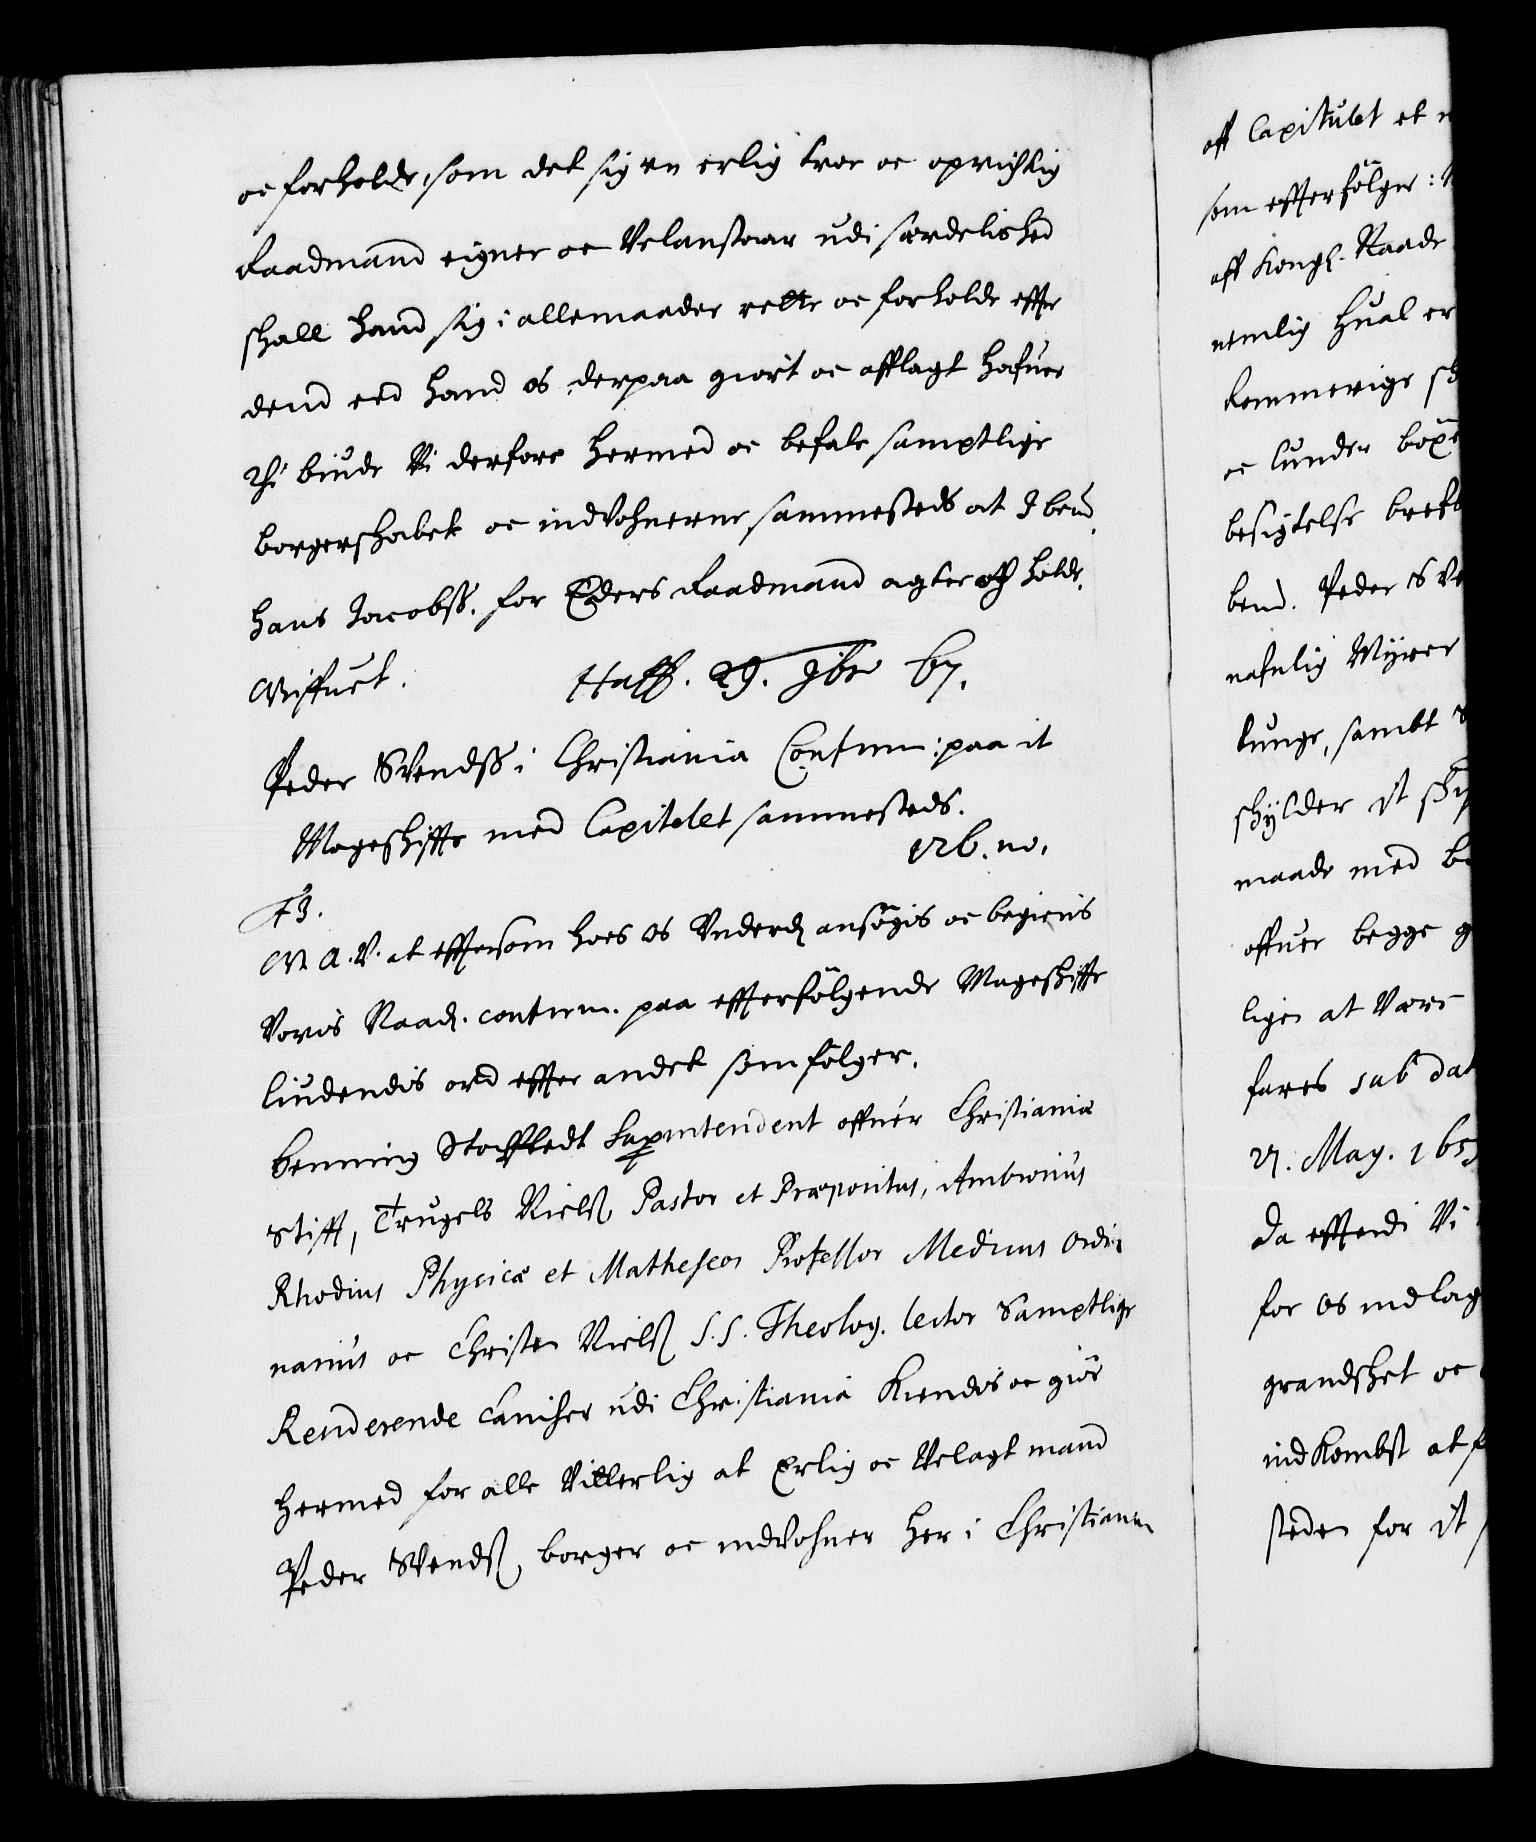 oc forholde, som det sig en erlig troe oc oprigtig
Raadmand eigner oc Velanstaar udi særdelished
shall hand sig i allemaader rette oc forholde effter
dend eed hand os derpaa giort oc afflagt hafuer
Thi biude Vi derfore hermed oc befale samptlige
borgerskabet oc indvohnerne sammesteds at I bemt.
Hans Jacobss. for Eders Raadmand agter och holde.
Haff. 29. 9br 57.
Peder Svendss i Christiania Confirm: paa it
Mageskiffte med Capitelet sammesteds.
F3.
W. A. V. at effterson hoes os Underd ansøgis oc begieris
Voris Naad. confirm. paa effterfölgende Mageskiffte
liudendis ord effter andet som fölger.
Henning Stockfledt Superintendent offuer Christianiæ
Stifft, Trugels Nielss Pastor et Præpositus, Ambrosius
Rhodius Physicæ et Matheseos Professor Medicus Ordi-
narius oc Christen Nielss S.S. Theolog. Lector Samptlige
Residerende Caniker udi Christiania Kiendis oc giör
hermed for alle Vitterlig at Erlig oc Velagt mand
Peder Svendss, borger oc indvohner her i Christiania
aff Capitulet et
som effterfölger:
aff Kongl. Naade
nemlig Hual
oc lunder
besigtelse
bemt. Peder
nafnlig Myrer
lunge, sambt
skylder it
maade med
offuer begge
ligen at Være
fares sub dat
27. May. 165
Da effterdi Vi
for os indlag
grandsket oc
indkombst at
steden for it